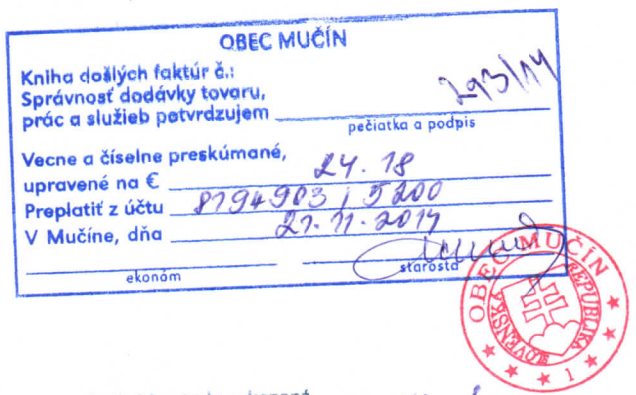 OBEC MUČÍN
Kniha došlých faktúr č.: 293/14
Správnosť dodávky tovaru,
prác a služieb potvrdzujem
pečiatka a podpis
Vecne a číselne preskúmané,
upravené na € 24.18
Preplatiť z účtu 8194903 / 5200
V Mučíne, dňa 21.11.2014
ekonóm starosta
OBEC MUČÍN
SLOVENSKÁ REPUBLIKA
1